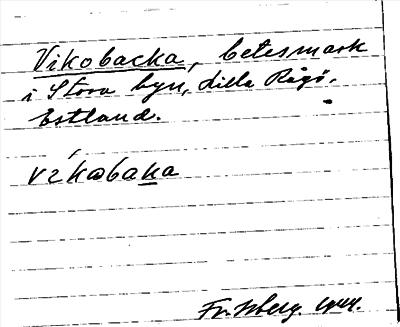 Vikobacka, betesmark
i Stora byn, Lilla Rågö,
Estland.
víkabaka
1944.